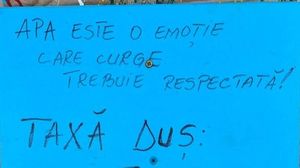 APA ESTE O EMOȚIE
CARE CURGE
TREBUIE RESPECTATĂ!
TAXĂ DUȘ: